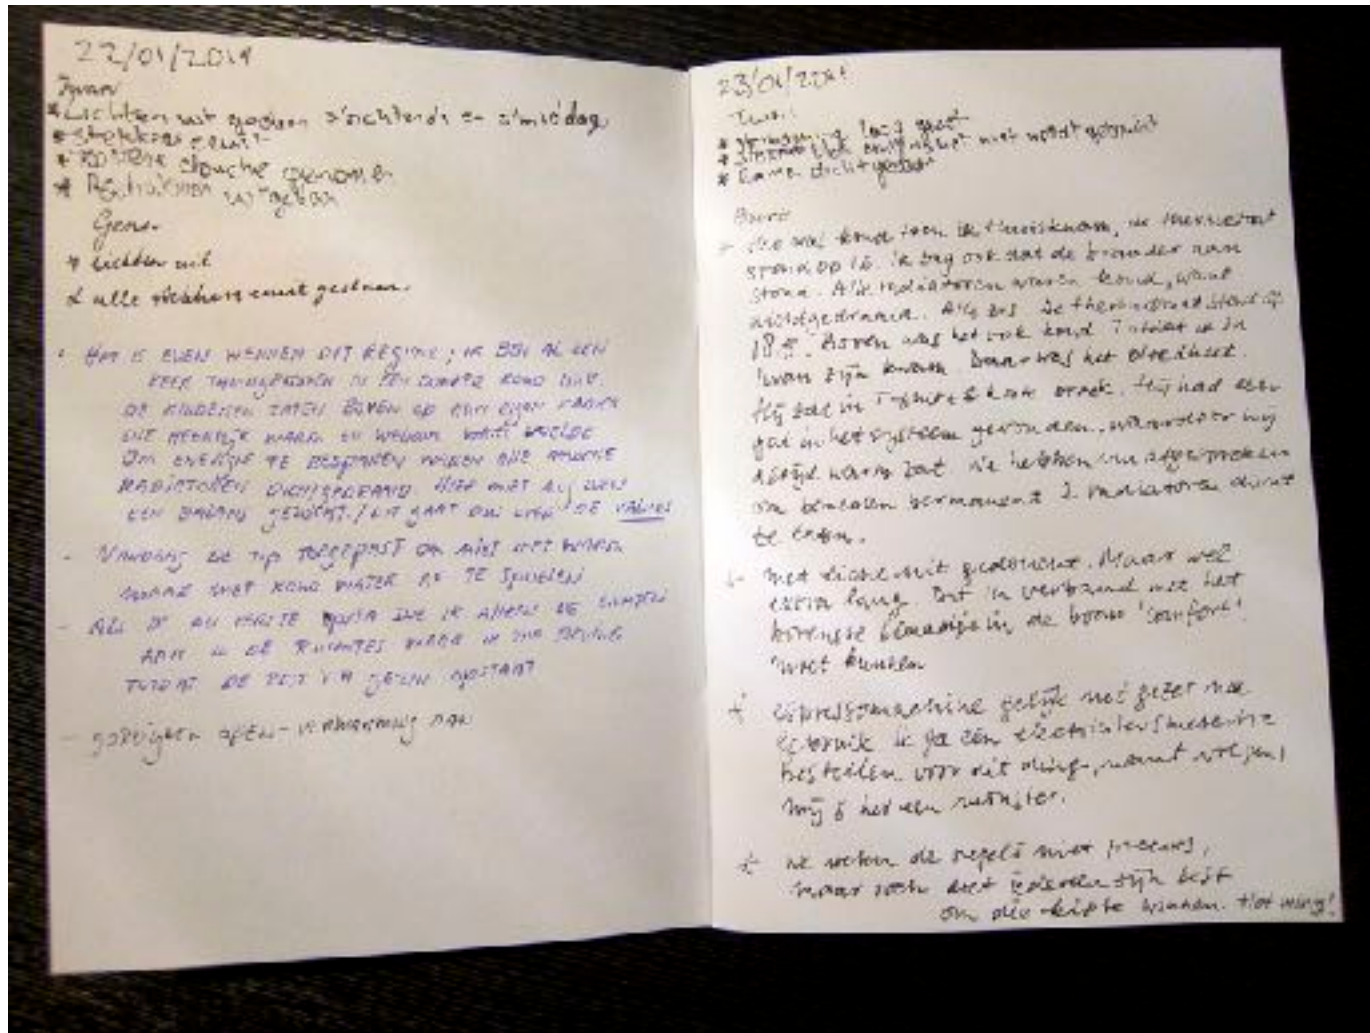 22/01/2014
Iwan
* Lichten uit gedaan s'ochtends en s'middag
* stekkers eruit
* douche genomen
*
Gens.
* lichten uit
* alle stekkers eruit gedaan.
- HET IS EVEN WENNEN DIT REGIME; IK BEN AL EEN
KEER THUISGEKOMEN IN EEN KOUD HUIS.
DE KINDEREN ZATEN BOVEN OP HUN EIGEN KAMER
DIE HEERLIJK WARM EN WELDADIG VOELDE
OM ENERGIE TE BESPAREN WAREN ALLE ANDERE
RADIATOREN DICHTGEDRAAID. HIER MOET NOG WEL
EEN BALANS GEZOCHT. / DIT GAAT DUS OVER DE
- VANDAAG DE TIP TOEGEPAST OM NIET MET WARM
MAAR MET KOUD WATER AF TE SPOELEN
- ALS IK ALS EERSTE OPSTA DOE IK ALLEEN DE LAMPEN
AAN IN DE RUIMTES WAAR IK ME BEVIND
TOTDAT DE REST V/H GEZIN OPSTAAT
- GORDIJNEN OPEN - VERWARMING AAN
23/01/2014
Iwan
* verwarming laag gezet
* niet wordt gebruikt
* Ramen dicht gedaan
* Het was koud toen ik thuiskwam, de thermostaat
stond op 16. Ik zag ook dat de brander aan
stond. Alle radiatoren waren koud, want
dichtgedraaid. De thermostaat stond op
18.5. Boven was het ook koud
Iwan zijn kamer. Daar was het bloedheet.
Hij zat in T-shirt & korte broek. Hij had een
gat in het systeem gevonden, waardoor hij
altijd warm zat. We hebben nu afgesproken
om beneden permanent 2 radiatoren
te laten.
* Met licht uit gedoucht. Maar wel
extra lang. Dit in verband met het
bovenste blaadje in de boom 'comfort'.
Moet kunnen
* Espressomachine gelijk uit gezet na
gebruik. Ik ga een
bestellen voor dit ding, want volgens
mij is het een monster.
* We weten de regels niet precies,
maar toch doet iedereen zijn best
om die te winnen. Tot morgen!